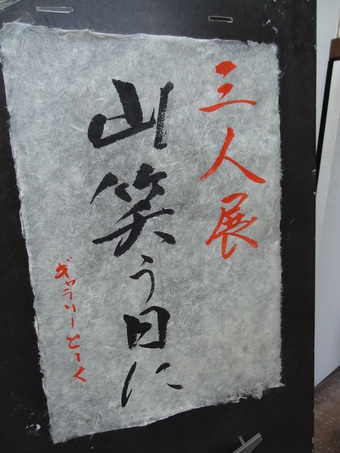 三人展
山笑う日に
ギャラリーとーく